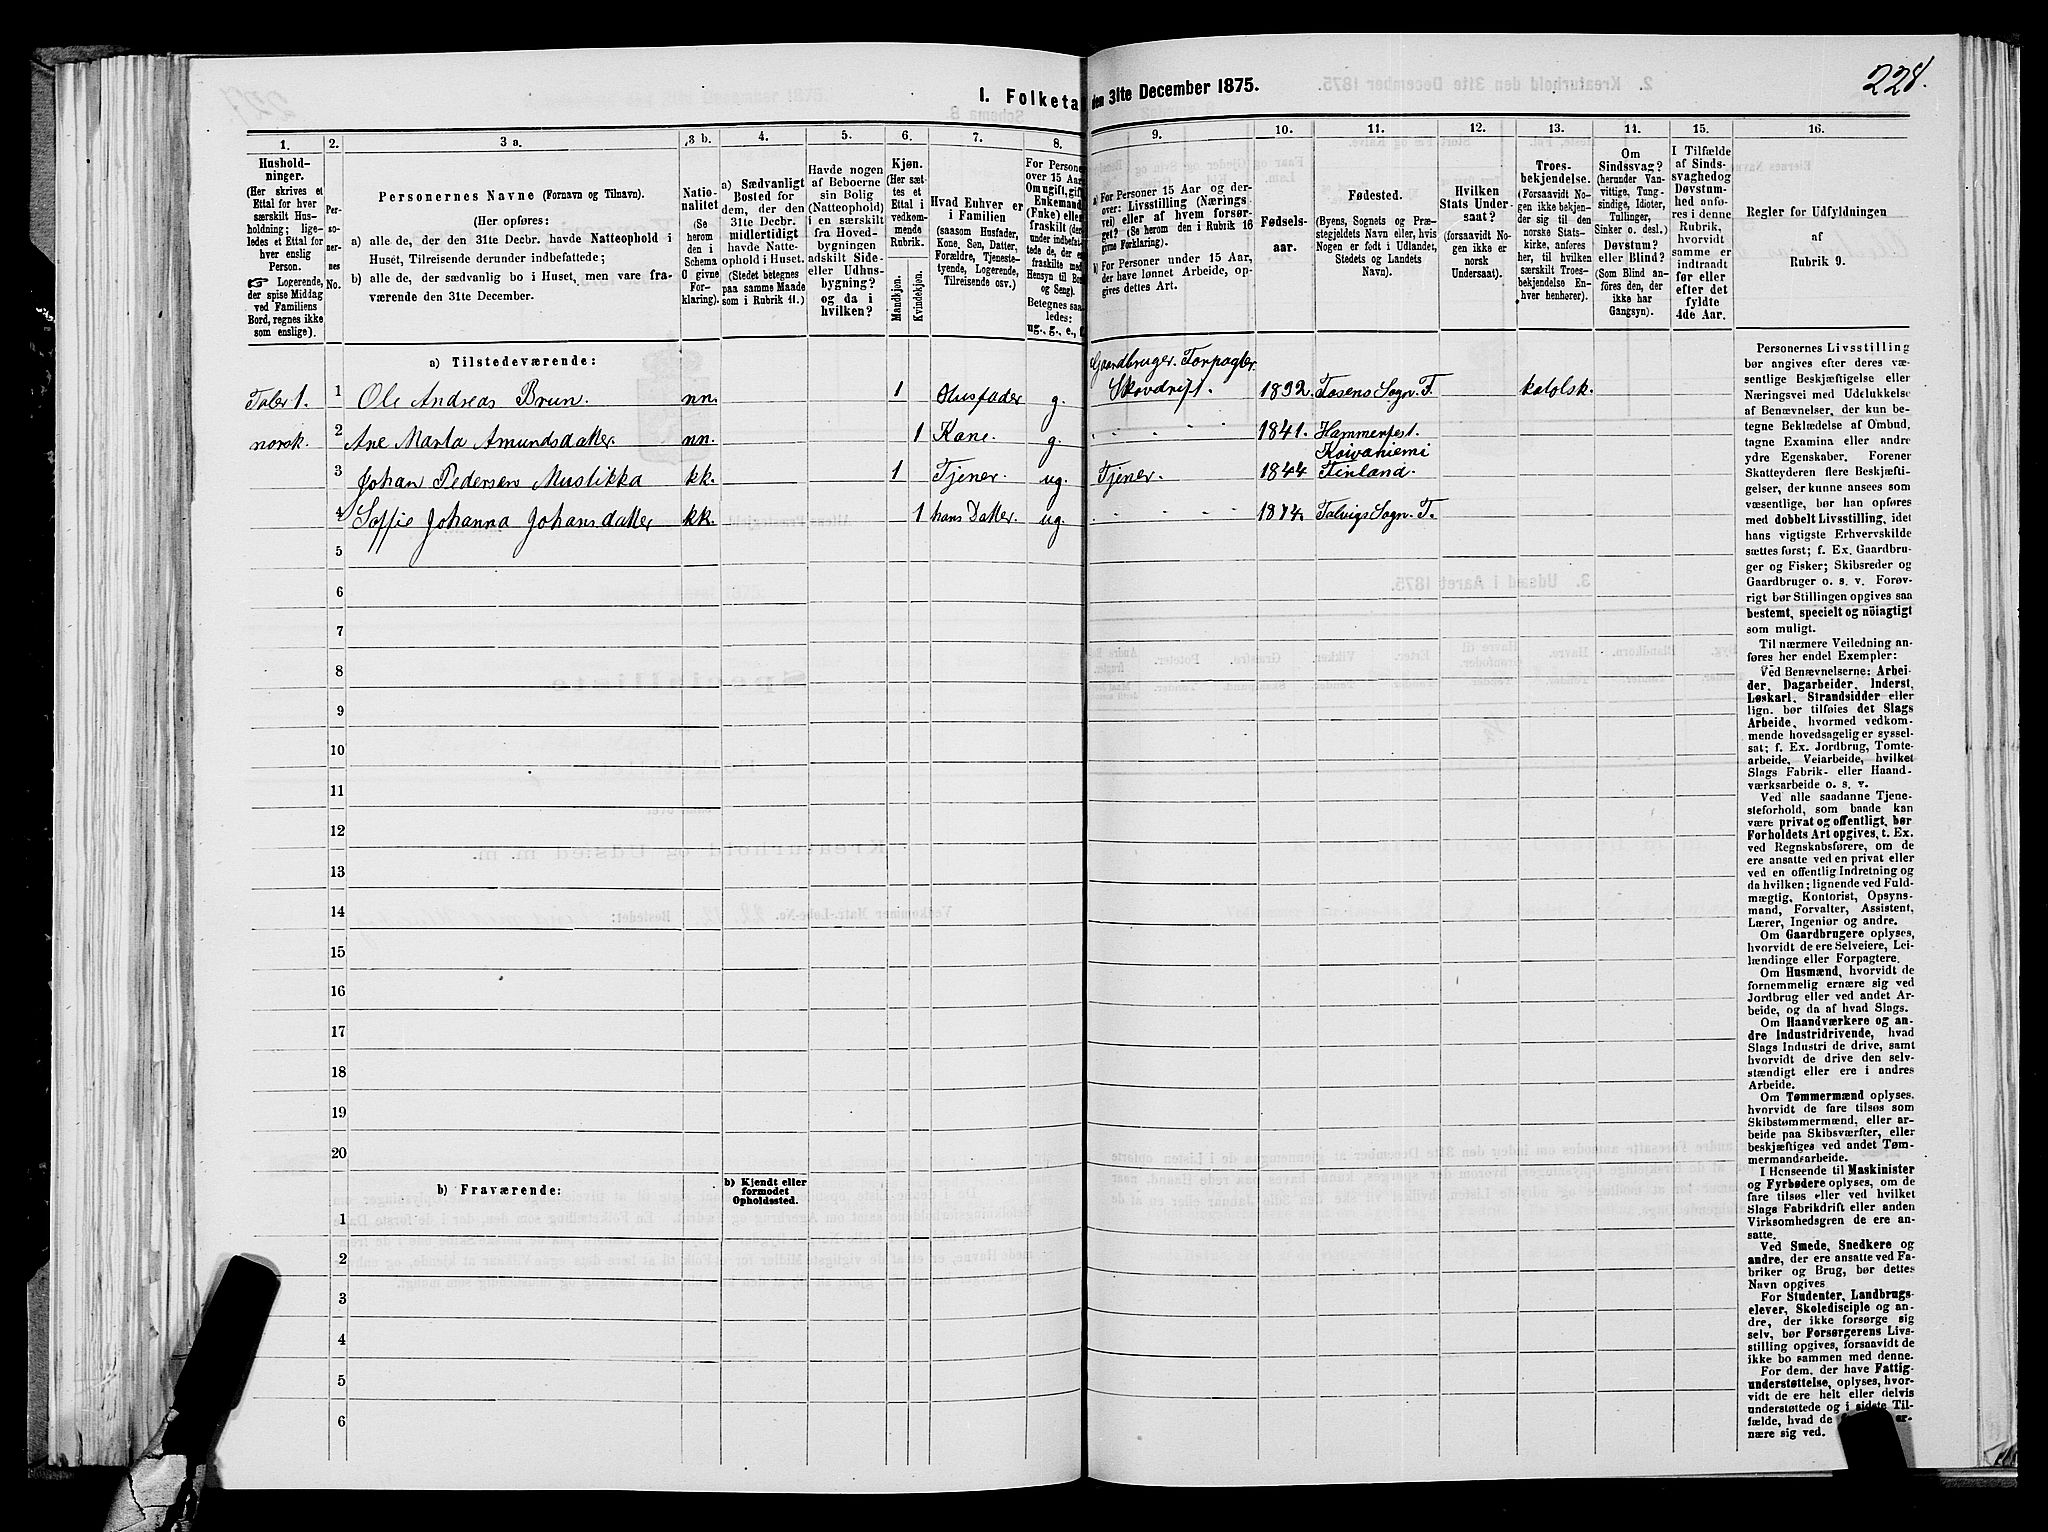 228.
I. Folketa
den 31te December 1875.
1.
Hushold-
ninger.
(Her skrives et
Ettal for hver
særskilt Hus-
holdning; lige-
ledes et Ettal for
hver enslig
Person.
☞ Logerende,
der spise Middag
ved Familiens
Bord, regnes ikke
som enslige).
2.
Per-
so-
ner-
nes
No.
3 a.
Personernes Navne (Fornavn og Tilnavn).
(Her opføres:
a) alle de, der den 31te Decbr. havde Natteophold i
Huset, Tilreisende derunder indbefattede;
b) alle de, der sædvanlig bo i Huset, men vare fra-
værende den 31te December.
3 b.
Natio-
nalitet
(Se
herom
den i
Schema
C givne
For-
klaring).
4.
a) Sædvanligt
Bosted for
dem, der den
31te Decbr.
midlertidigt
havde Natte-
ophold i Huset.
(Stedet betegnes
paa samme Maade
som i Rubrik 11.)
5.
Havde nogen
af Beboerne
sin Bolig
(Natteophold)
i en særskilt
fra Hoved-
bygningen
adskilt Side-
eller Udhus-
bygning?
og da i
hvilken?
6.
Kjøn.
(Her sæt-
tes et
Ettal i
vedkom-
mende
Rubrik.
Mandkjøn.
Kvindekjøn.
7.
Hvad Enhver er
i Familien
(saasom Husfader,
Kone, Søn, Datter,
Forældre, Tjeneste-
tyende, Logerende,
Tilreisende osv.)
8.
For Persone
over 15 Aar
Om ugift, gift
Enkemand
(Enke) eller
fraskilt (der
under indbefat-
tede de, der ere
fraskilte med
Hensyn til Bord
og Seng).
Betegnes saa-
ledes:
ug., g., e., f.
9.
a) For Personer 15 Aar og der-
over: Livsstilling (Nærings-
vei) eller af hvem forsør-
get? (Se herom den i Rubrik 16
givne Forklaring).
b) For Personer under 15 Aar,
der have lønnet Arbeide, op-
gives dettes Art.
10.
Fødsels-
aar.
11.
Fødested.
(Byens, Sognets og Præ-
stegjeldets Navn eller, hvis
Nogen er født i Udlandet,
Stedets og Landets
Navn).
12.
Hvilken
Stats Under-
saat?
(forsaavidt No-
gen ikke er
norsk
Undersaat).
13.
Troes-
bekjendelse.
(Forsaavidt No-
gen ikke bekjen-
der sig til den
norske Stats-
kirke, anføres
her, til hvilken
særskilt Troes-
bekjendelse En-
hver henhører).
14.
Om
Sindssvag?
(herunder Van-
vittige, Tung-
sindige, Idioter,
Tullinger,
Sinker o. desl.)
Døvstum?
eller Blind?
(Som Blind an-
føres den, der
ikke har
Gangsyn).
15.
I Tilfælde
af Sinds-
svaghed og
Døvstum-
hed anfø-
res i denne
Rubrik,
hvorvidt
samme er
indtraadt
før eller
efter det
fyldte
4de Aar.
16.
Regler for Udfyldningen
af
Rubrik 9.
a) Tilstedeværende:
Gaardbruger. Forpagter.
Taler 1. 1 Ole Andreas Brun. nn. 1 Husfader g. Skovdrift. 1832. Tosens Sogn. F. katolsk.
norsk. 2 Ane Marta Amundsdatter. nn. 1 Kone. g. 1841. Hammerfest.
Koivaniemi
3 Johan Pedersen Muslikka kk. 1 Tjener. ug. Tjener. 1844 Finland.
4 Soffie Johanna Johansdatter kk. 1 hans Datter. ug. 1874. Talvigs Sogn. F.
5
6
7
8
9
10
11
12
13
14
15
16
17
18
19
20
b) Fraværende:
b) Kjendt eller
formodet
Opholdssted.
1
2
3
4
5
6
Personernes Livsstilling
bør angives efter deres væ-
sentlige Beskjæftigelse eller
Næringsvei med Udelukkelse
af Benævnelser, der kun be-
tegne Beklædelse af Ombud,
tagne Examina eller andre
ydre Egenskaber. Forener
Skatteyderen flere Beskjæfti-
gelser, der kunne ansees som
væsentlige, bør han opføres
med dobbelt Livsstilling, idet
hans vigtigste Erhvervskilde
sættes først; f. Ex. Gaardbru-
ger og Fisker; Skibsreder og
Gaardbruger o. s. v. Forøv-
rigt bør Stillingen opgives saa
bestemt, specielt og nöiagtigt
som muligt.
Til nærmere Veiledning an-
føres her endel Exempler:
Ved Benævnelserne: Arbei-
der, Dagarbeider, Inderst,
Løskarl, Strandsidder eller
lign. bør tilføies det Slags
Arbeide, hvormed vedkom-
mende hovedsagelig er syssel-
sat; f. Ex. Jordbrug, Tomte-
arbeide, Veiarbeide, hvilket
Slags Fabrik- eller Haand-
værksarbeide o. s. v.
Ved alle saadanne Tjene-
steforhold, som baade kan
være privat og offentligt, bør
Forholdets Art opgives, t. Ex.
ved Regnskabsførere, om de
ere ansatte ved en privat eller
ved en offentlig Indretning og
da hvilken; lignende ved Fuld-
mægtig, Kontorist, Opsyns-
mand, Forvalter, Assistent,
Lærer, Ingeniør og andre.
Om Gaardbrugere oplyses,
hvorvidt de ere Selveiere, Lei-
lændinge eller Forpagtere.
Om Husmænd, hvorvidt de
fornemmelig ernære sig ved
Jordbrug eller ved andet Ar-
beide, og da af hvad Slags.
Om Haandværkere og an-
dre Industridrivende, hvad
Slags Industri de drive, samt
hvorvidt de drive den selv-
stændigt eller ere i andres
Arbeide.
Om Tømmermænd oplyses,
hvorvidt de fare tilsøs som
Skibstømmermænd, eller ar-
beide paa Skibsværfter, eller
beskjæftiges ved andet Tøm-
mermandsarbeide.
I Henseende til Maskinister
og Fyrbødere oplyses, om de
fare tilsøs eller ved hvilket
Slags Fabrikdrift eller anden
Virksomhedsgren de ere an-
satte.
Ved Smede, Snedkere og
andre, der ere ansatte ved Fa-
briker og Brug, bør dettes
Navn opgives
For Studenter, Landbrugs-
elever, Skoledisciple og an-
dre, der ikke forsørge sig
selv, bør Forsørgerens Livs-
stilling opgives, forsaavidt de
ikke bo sammen med denne.
For dem, der have Fattig-
understøttelse, oplyses, hvor-
vidt de ere helt eller delvis
understøttede og i sidste Til-
fælde, hvad de
nære sig ved.